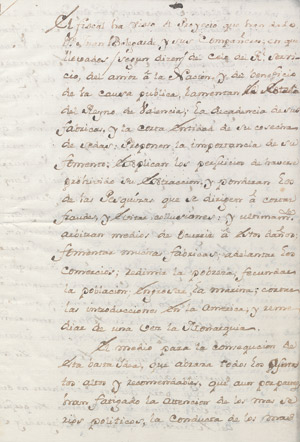 El fiscal ha visto el Proyecto que han dado
y sus Compañeros, en que
llevados, segun dicen, del Celo de Rl. Servi-
cio, del amor à la Nacion, y de beneficio
de la Causa publica, lamentan la
del Reyno de Valencia; la decadencia de sus
fabricas, y la corta entidad de su cosecha
de Sedas; Proponen la importancia de su
fomento; Explican los perjuicios de haverse
prohivido su extraccion, y ponderan los
de las Pesquisas que se dirigen à cortar
fraudes, y evitar colusiones; y ultimamte.
arbitran medios de ocurrir à estos daños:
fomentar muchas fabricas, adelantar los
Comercios; redimir la pobreza, fecundar
la poblacion, engrosar la marina; cortar
las introducciones en la America, y reme-
diar de una vez la Monarquia.
El medio para la consequcion de
esta basta idea, que abraza todos los
tos altos y recomendables, que aun
bran fatigado la atencion de los mas se-
rios politicos, la conducta de los mas